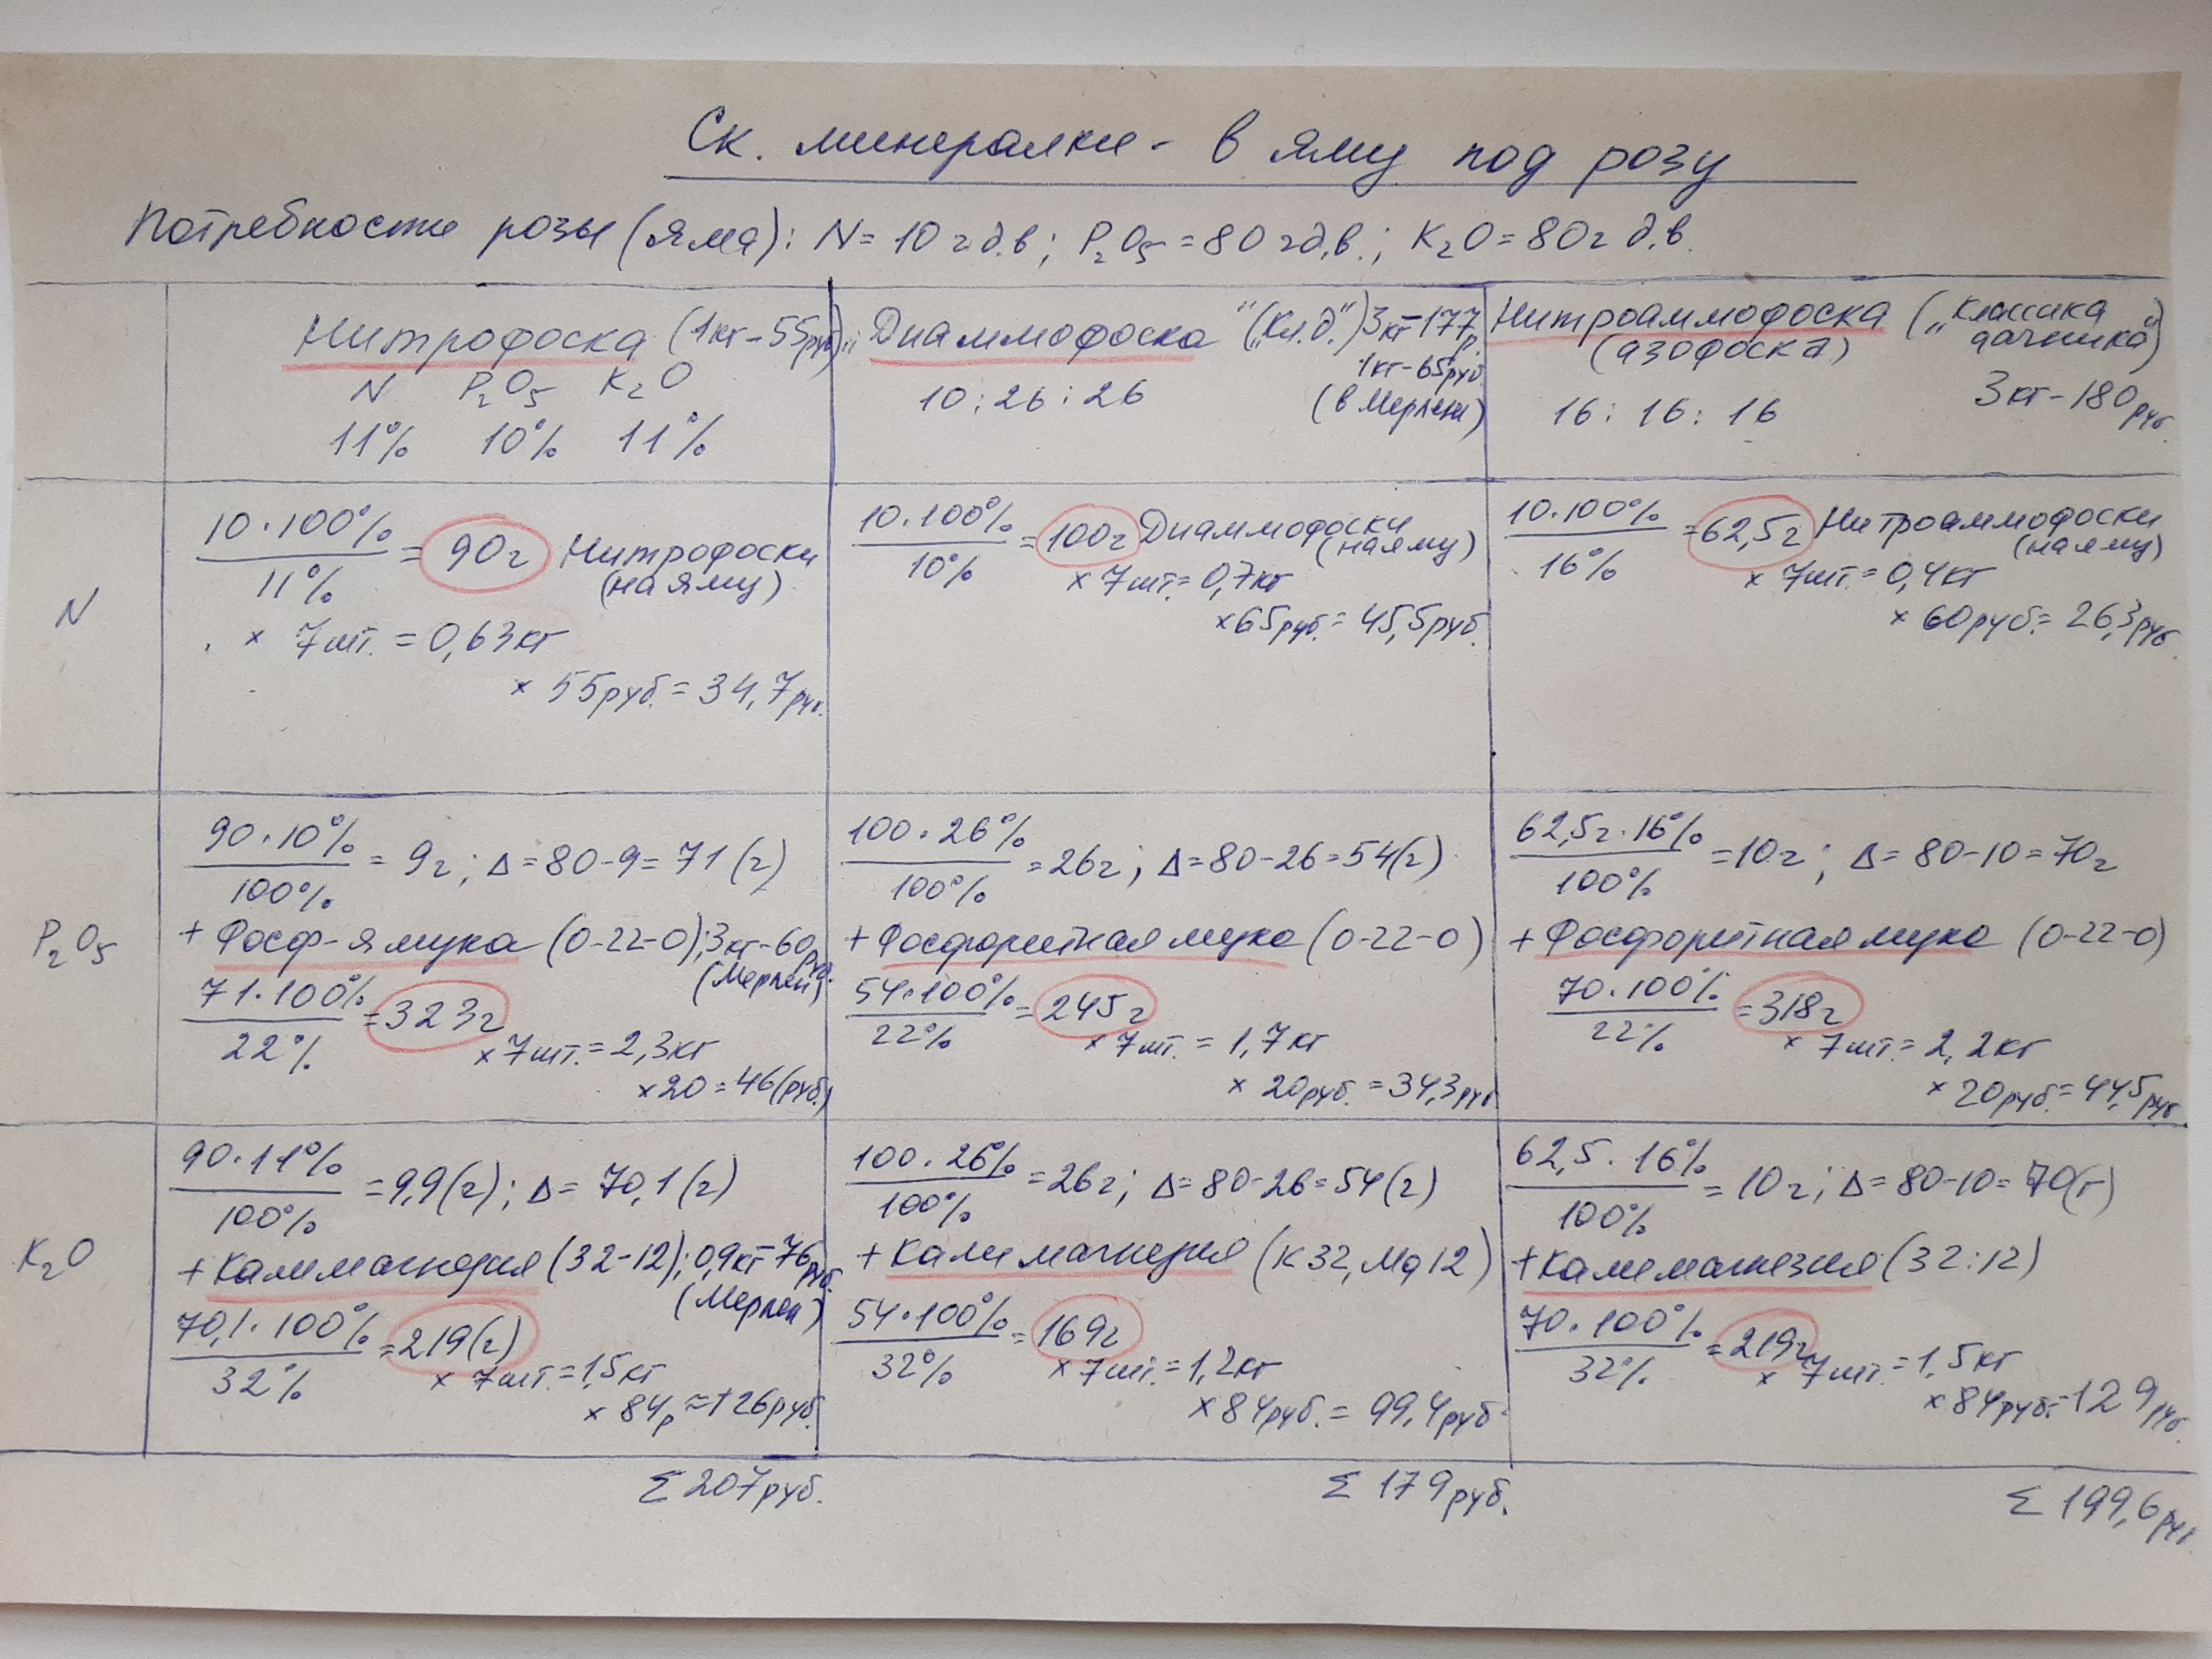 Ск. минералки - в яму под розу
Потребности розы (яма): N = 10 г д.в; P₂O₅ = 80 г д.в.; K₂O = 80 г д.в.
Нитрофоска (1кг - 55руб.)
N P₂O₅ K₂O
11% 10% 11%
Диаммофоска ("Кл.д.") 3кг - 177р.
1кг - 65руб
10 : 26 : 26 (в Мерлене)
Нитроаммофоска („Классика
(азофоска) дачника")
16 : 16 : 16 3кг - 180руб.
N
10·100%
11%
= 90г Нитрофоски
(на яму)
× 7шт. = 0,63кг
× 55руб. = 34,7руб.
10·100%
10%
= 100г Диаммофоски
(на яму)
× 7шт. = 0,7кг
× 65руб. = 45,5руб.
10·100%
16%
= 62,5г Нитроаммофоски
(на яму)
× 7шт. = 0,4кг
× 60руб. = 26,3руб
P₂O₅
90·10%
100%
= 9г; Δ = 80-9 = 71(г)
+ Фосф-я мука (0-22-0); 3кг - 60руб.
(Мерлен)
71·100%
22%
= 323г
× 7шт. = 2,3кг
× 20 = 46(руб.)
100·26%
100%
= 26г; Δ = 80-26 = 54(г)
+ Фосфоритная мука (0-22-0)
54·100%
22%
= 245г
× 7шт. = 1,7кг
× 20руб. = 34,3руб
62,5г·16%
100%
= 10г; Δ = 80-10 = 70г
+ Фосфоритная мука (0-22-0)
70·100%
22%
= 318г
× 7шт. = 2,2кг
× 20руб. = 44,5руб
K₂O
90·11%
100%
= 9,9(г); Δ = 70,1(г)
+ Калимагнезия (32-12); 0,9кг - 76руб.
(Мерлен)
70,1·100%
32%
= 219(г)
× 7шт. = 1,5кг
× 84р ≈ 126руб.
100·26%
100%
= 26г; Δ = 80-26 = 54(г)
+ Калимагнезия (K 32, Mg 12)
54·100%
32%
= 169г
× 7шт. = 1,2кг
× 84руб. = 99,4руб
62,5·16%
100%
= 10г; Δ = 80-10 = 70(г)
+ Калимагнезия (32:12)
70·100%
32%
= 219г
× 7шт. = 1,5кг
× 84руб. = 129руб.
Σ 207руб.
Σ 179руб.
Σ 199,6руб